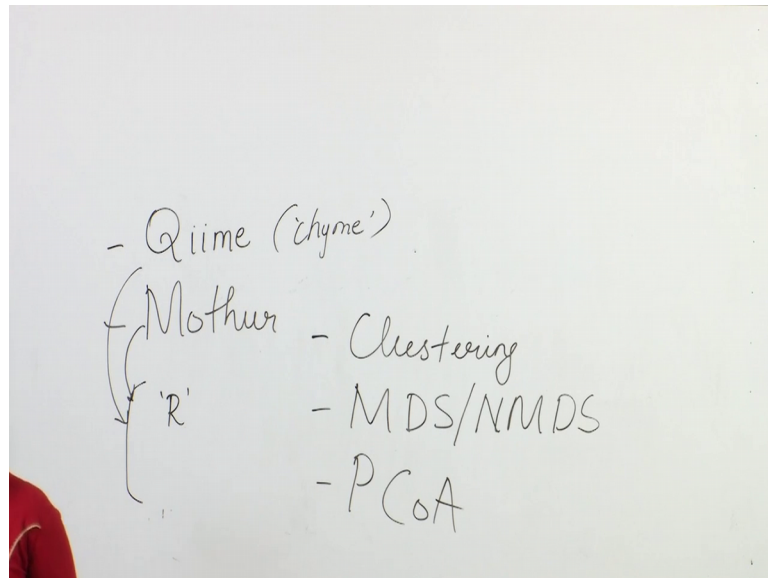 - Qiime ('chyme')
- Mothur
'R'
- Clustering
- MDS/NMDS
- PCoA